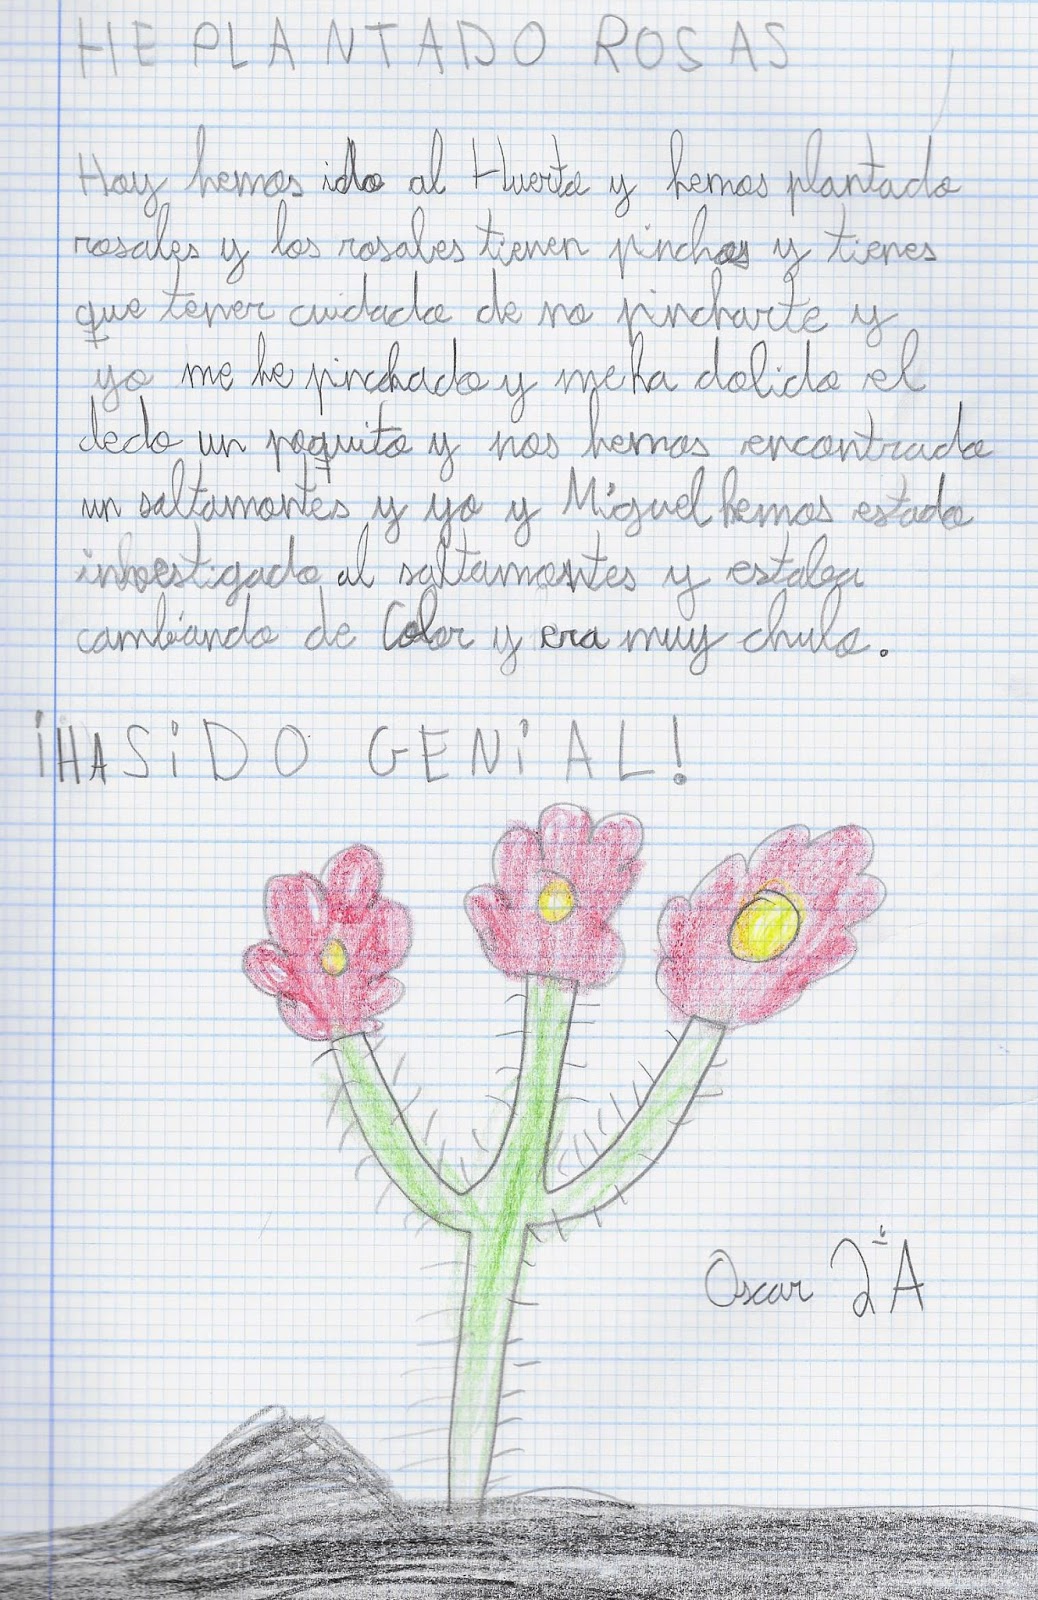 HE PLANTADO ROSAS
Hoy hemos ido al Huerto y hemos plantado
rosales y los rosales tienen pinchos y tienes
que tener cuidado de no pincharte y
yo me he pinchado y me ha dolido el
dedo un poquito y nos hemos encontrado
un saltamontes y yo y Miguel hemos estado
inbestigado al saltamontes y estaba
cambiando de Color y era muy chulo.
¡HA SIDO GENIAL!
Oscar 2º A